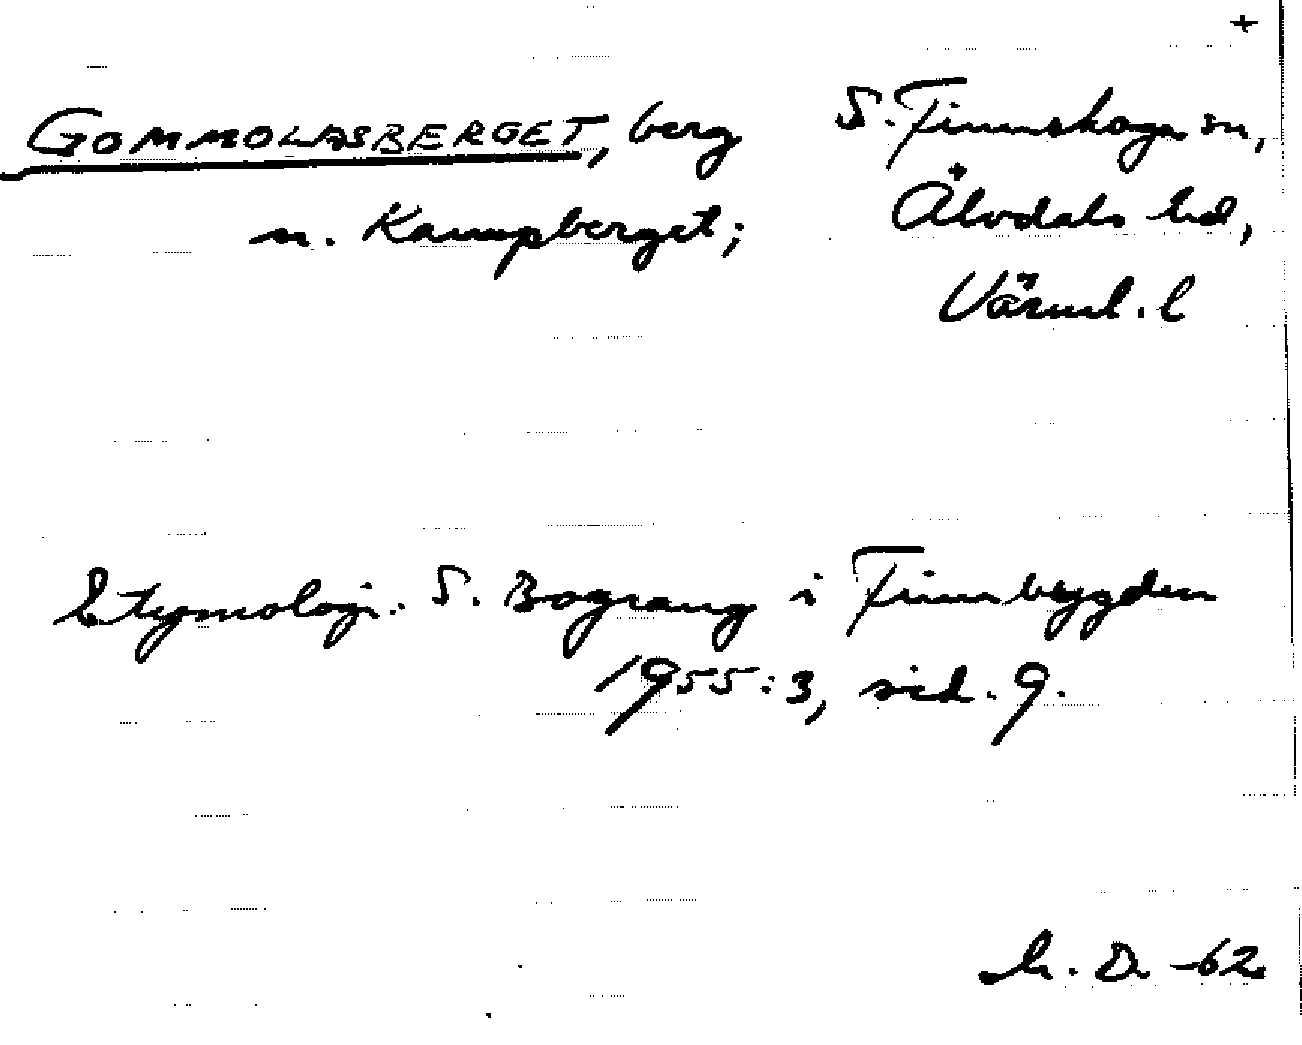 +
GOMMOLASBERGET, berg S. Finnskoga sn,
n. Kampberget; Älvdals hd,
Värml. l
Etymologi. S. Bograng i Finnbygden
1955:3, sid. 9.
D. -62